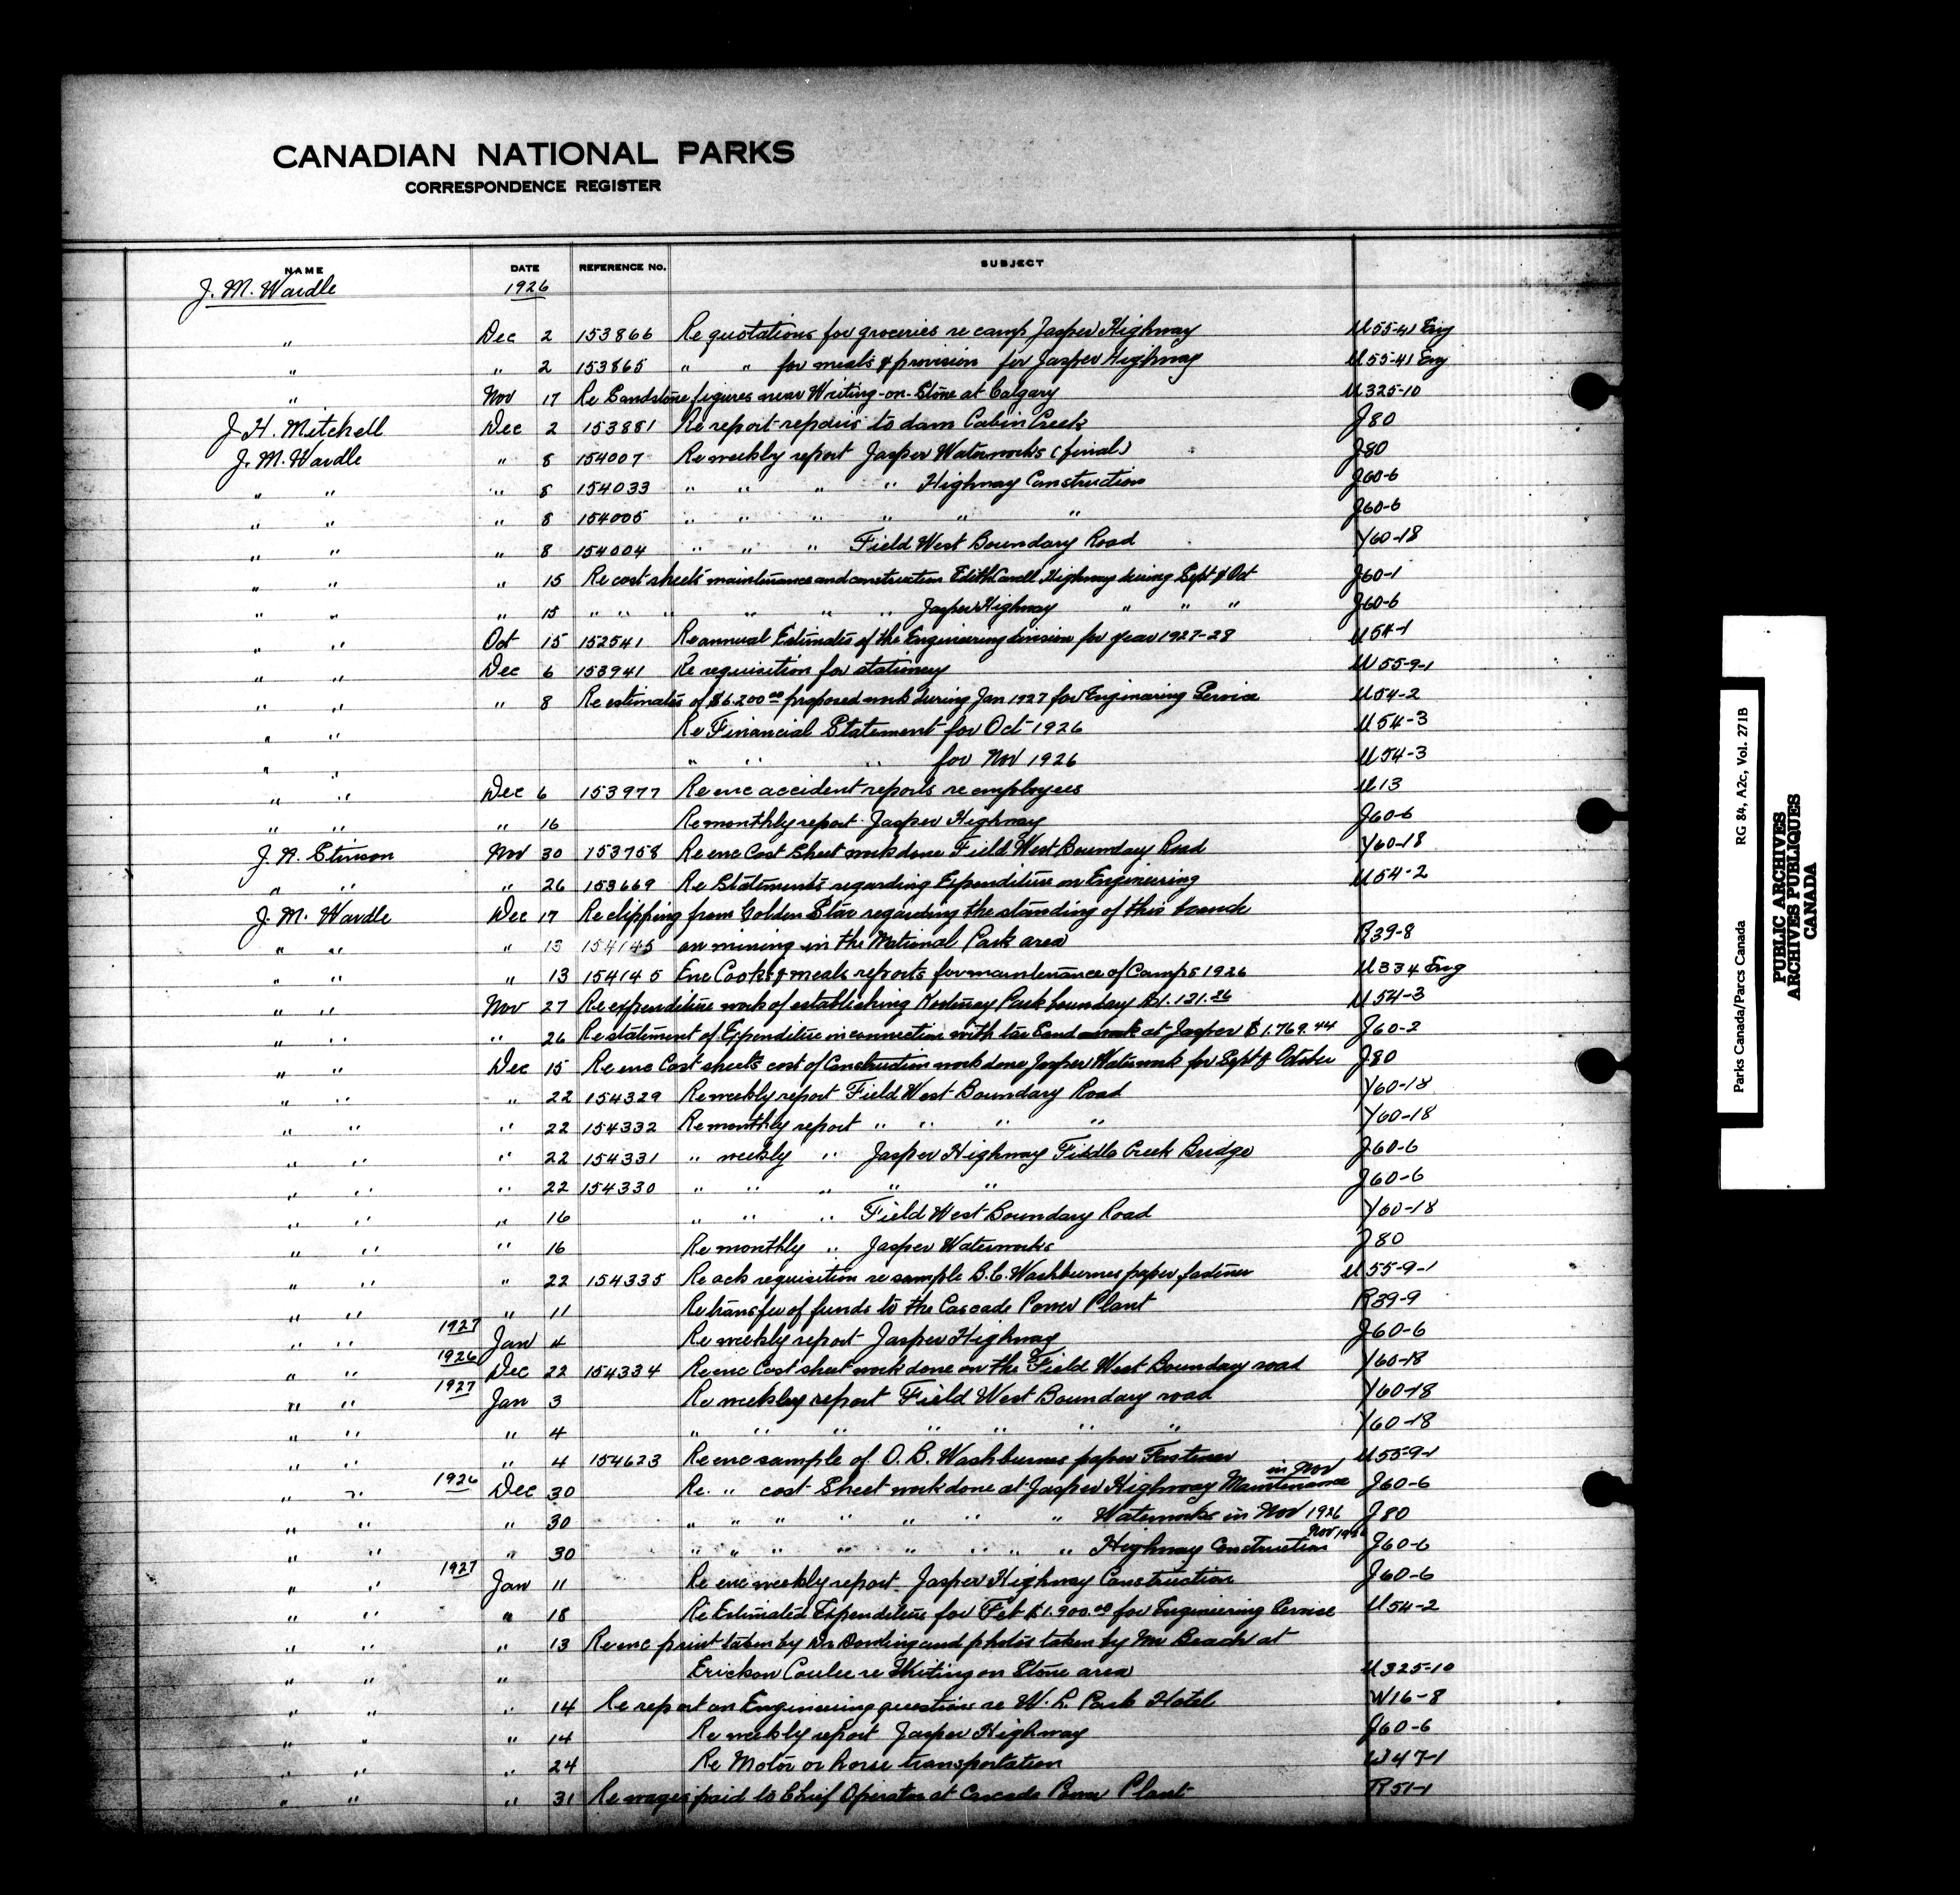 CANADIAN NATIONAL PARKS
CORRESPONDENCE REGISTER
NAME DATE REFERENCE NO. SUBJECT
J. M. Wardle 1926
" Dec 2 153866 Re quotations for groceries re camp Jasper Highway U55-41 Eng
" " 2 153865 " " for meats & provision for Jasper Highway U55-41 Eng
" Nov 17 Re Sandstone figures near Writing-on-Stone at Calgary U325-10
J. H. Mitchell Dec 2 153881 Re report repairs to dam Cabin Creek J80
J. M. Wardle " 8 154007 Re weekly report Jasper Waterworks (final) J80
" " " 8 154033 " " " " Highway Construction J60-6
" " " 8 154005 " " " " " " J60-6
" " " 8 154004 " " " Field West Boundary Road Y60-18
" " " 15 Re cost sheets maintenance and construction Edith Cavell Highway during Sept & Oct J60-1
" " " 15 " " " " " " Jasper Highway " " " J60-6
" " Oct 15 152541 Re annual Estimates of the Engineering division for year 1927-28 U54-1
" " Dec 6 153941 Re requisition for stationery U55-9-1
" " " 8 Re estimates of $6.200 00 proposed work during Jan 1927 for Engineering Service U54-2
" " Re Financial Statement for Oct 1926 U54-3
" " " " " for Nov 1926 U54-3
" " Dec 6 153977 Re enc accident reports re employees U13
" " " 16 Re monthly report Jasper Highway J60-6
J. N. Stinson Nov 30 153758 Re enc Cost Sheet work done Field West Boundary Road Y60-18
" " " 26 153669 Re Statements regarding Expenditure on Engineering U54-2
J. M. Wardle Dec 17 Re clipping from Golden Star regarding the standing of this branch
" " " 13 154145 on mining in the National Park area R39-8
" " " 13 154145 Enc Cooks & meals reports for maintenance of Camps 1926 U334 Eng
" " Nov 27 Re expenditure work of establishing Kootenay Park boundary $1.121.26 U54-3
" " " 26 Re statement of Expenditure in connection with tar Sand work at Jasper $1.769.44 J60-2
" " Dec 15 Re enc Cost sheets cost of Construction work done Jasper Waterwork for Sept & October J80
" " " 22 154329 Re weekly report Field West Boundary Road Y60-18
" " " 22 154332 Re monthly report " " " " Y60-18
" " " 22 154331 " weekly " Jasper Highway Fiddle Creek Bridge J60-6
" " " 22 154330 " " " " " J60-6
" " " 16 " " " Field West Boundary Road Y60-18
" " " 16 Re monthly " Jasper Waterworks J80
" " " 22 154335 Re ack requisition re sample B.C. Washburnes paper fastener U55-9-1
" " " 11 Re transfer of funds to the Cascade Power Plant R39-9
" " 1927 Jan 4 Re weekly report Jasper Highway J60-6
" " 1926 Dec 22 154334 Re enc Cost sheet work done on the Field West Boundary road Y60-18
" " 1927 Jan 3 Re weekley report Field West Boundary road Y60-18
" " " 4 " " " " " " " Y60-18
" " " 4 154623 Re enc sample of O. B. Washburnes paper Fastener U55-9-1
" " 1926 Dec 30 Re. " cost Sheet work done at Jasper Highway Maintenance in Nov J60-6
" " " 30 " " " " " " " Waterworks in Nov 1926 J80
" " " 30 " " " " " " " " Highway Construction Nov 1926 J60-6
" " 1927 Jan 11 Re enc weekly report Jasper Highway Construction J60-6
" " " 18 Re Estimated Expenditure for Feb $1.900.00 for Engineering Service U54-2
" " " 13 Re enc print taken by Dr Dowling and photos taken by Mr Beach at
" " " Erickson Coulee re Writing on Stone area U325-10
" " " 14 Re report on Engineering questions re W. L. Park Hotel W16-8
" " " 14 Re weekly report Jasper Highway J60-6
" " " 24 Re Motor or horse transportation W47-1
" " " 31 Re wages paid to Chief Operator at Cascade Power Plant R51-1
Parks Canada/Parcs Canada RG 84, A2c, Vol. 271B
PUBLIC ARCHIVES
ARCHIVES PUBLIQUES
CANADA